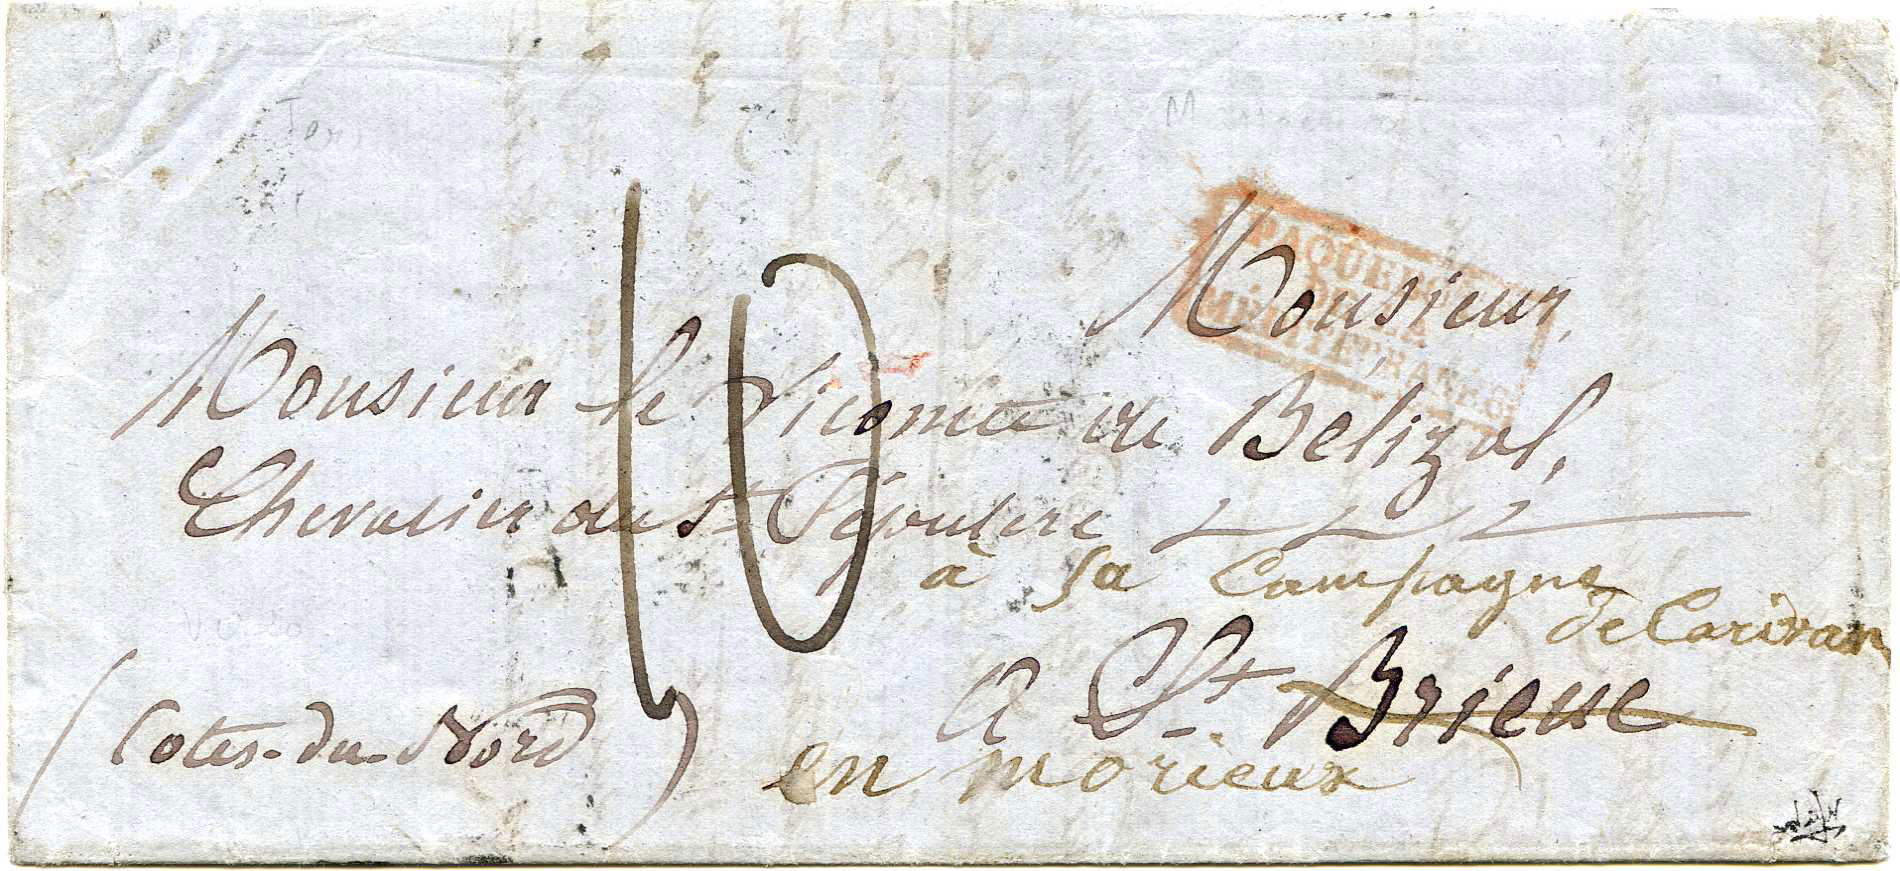 PAQUEBOTS
DE LA
MÉDITERRANÉE
10
Monsieur,
Monsieur le Vicomte de Belizal,
Chevalier de St
à sa Campagne
de Carivan
a St Brieuc
(Cotes-du-Nord)
en morieux